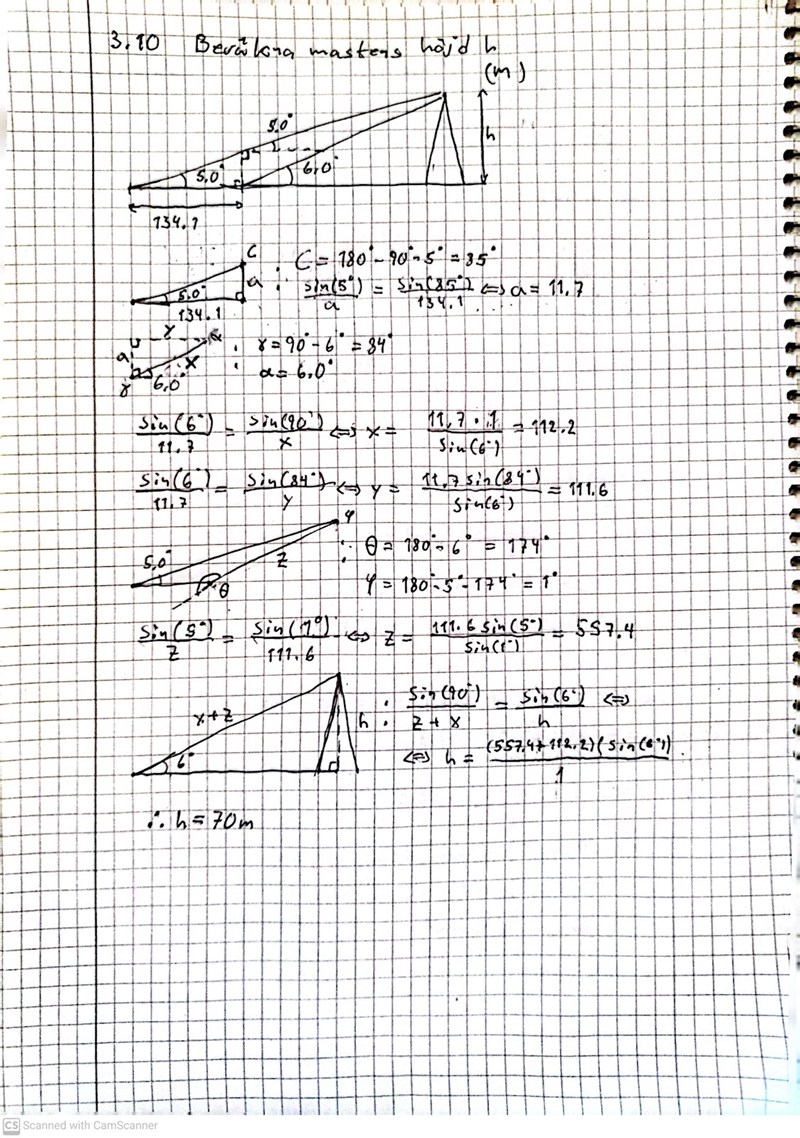 3.10 Beräkna mastens höjd h
(m)
5.0°
h
5.0° 6.0°
134.1
C
a
5.0°
134.1
: C = 180° - 90° - 5° = 85°
sin(5°)/a = sin(85°)/134.1 ⇔ a = 11.7
y α
a x
γ 6.0°
: γ = 90° - 6° = 84°
: α = 6.0°
sin(6°)/11.7 = sin(90°)/x ⇔ x = 11,7 · 1/sin(6°) = 112.2
sin(6°)/11.7 = sin(84°)/y ⇔ y = 11,7 sin(84°)/sin(6°) = 111.6
φ
5.0° z
θ
∴ θ = 180° - 6° = 174°
φ = 180° - 5° - 174° = 1°
sin(5°)/z = sin(1°)/111.6 ⇔ z = 111.6 sin(5°)/sin(1°) = 557.4
x+z
h
6°
: sin(90°)/z + x = sin(6°)/h ⇔
⇔ h = (557.4+112.2)(sin(6°))/1
∴ h = 70m
CS Scanned with CamScanner